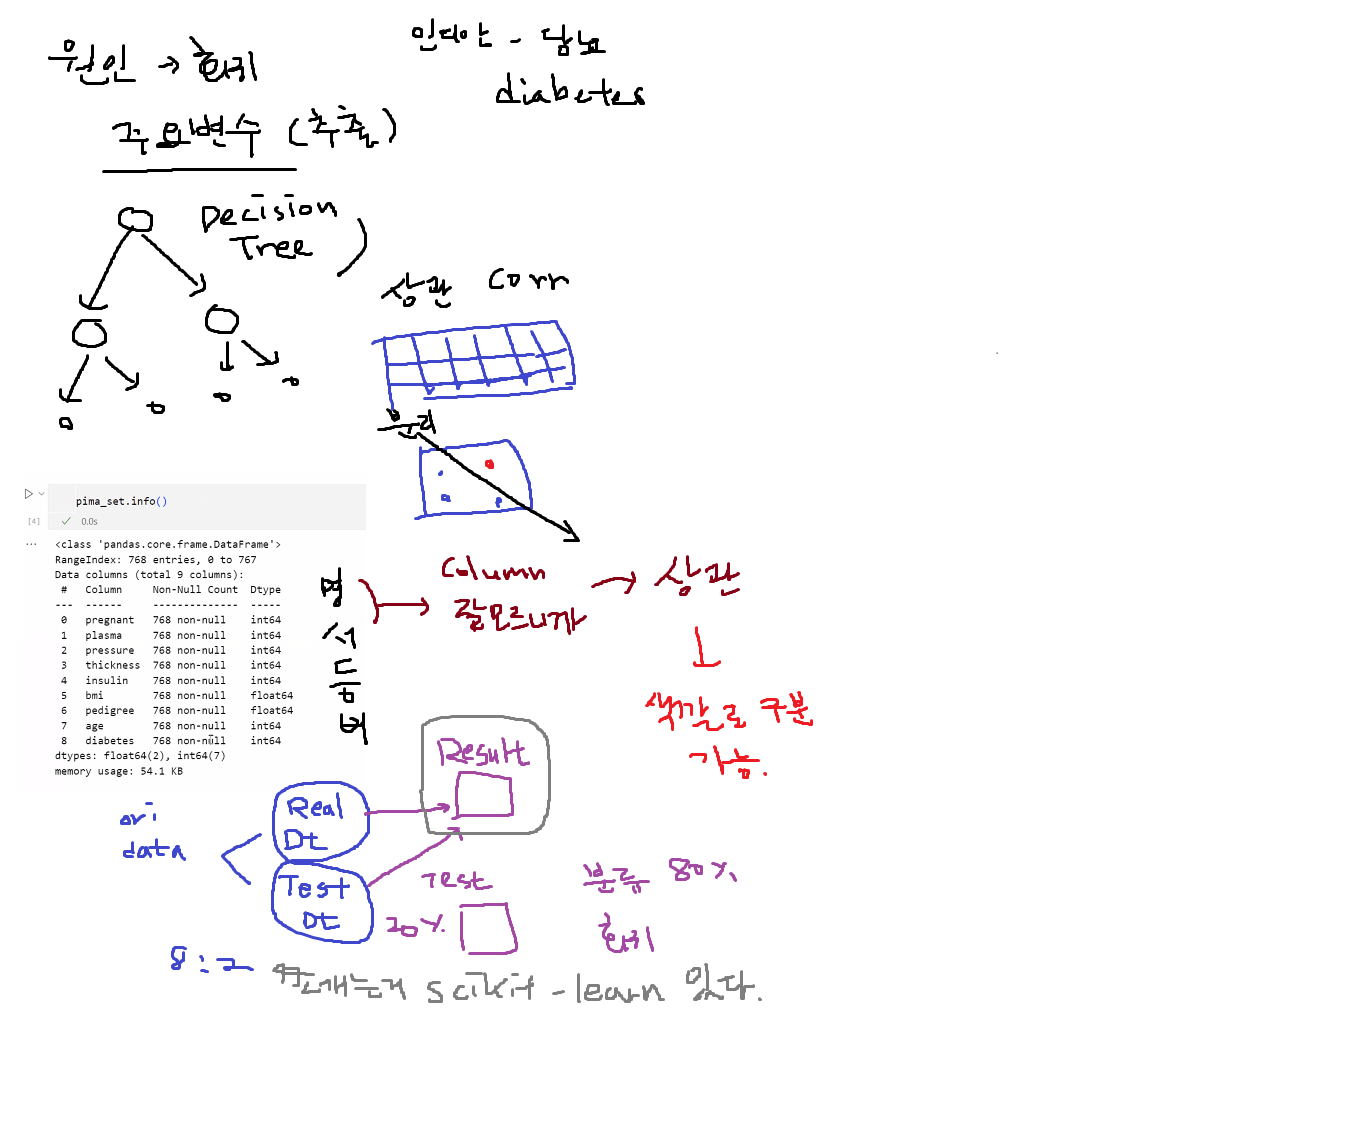 원인 → 회귀
인디안 - 당뇨
diabetes
주요변수 (추출)
Decision
Tree
상관 Corr
분리
pima_set.info()
[4] ✓ 0.0s
<class 'pandas.core.frame.DataFrame'>
RangeIndex: 768 entries, 0 to 767
Data columns (total 9 columns):
 #   Column     Non-Null Count  Dtype
---  ------     --------------  -----
 0   pregnant   768 non-null    int64
 1   plasma     768 non-null    int64
 2   pressure   768 non-null    int64
 3   thickness  768 non-null    int64
 4   insulin    768 non-null    int64
 5   bmi        768 non-null    float64
 6   pedigree   768 non-null    float64
 7   age        768 non-null    int64
 8   diabetes   768 non-null    int64
dtypes: float64(2), int64(7)
memory usage: 54.1 KB
Column
잘모르니까
→ 상관
색깔로 구분
가능.
Result
ori
data
Real
Dt
Test
Dt
Test
20%
분류 80%
회귀
8:2
쪼개는거 scikit-learn 있다.